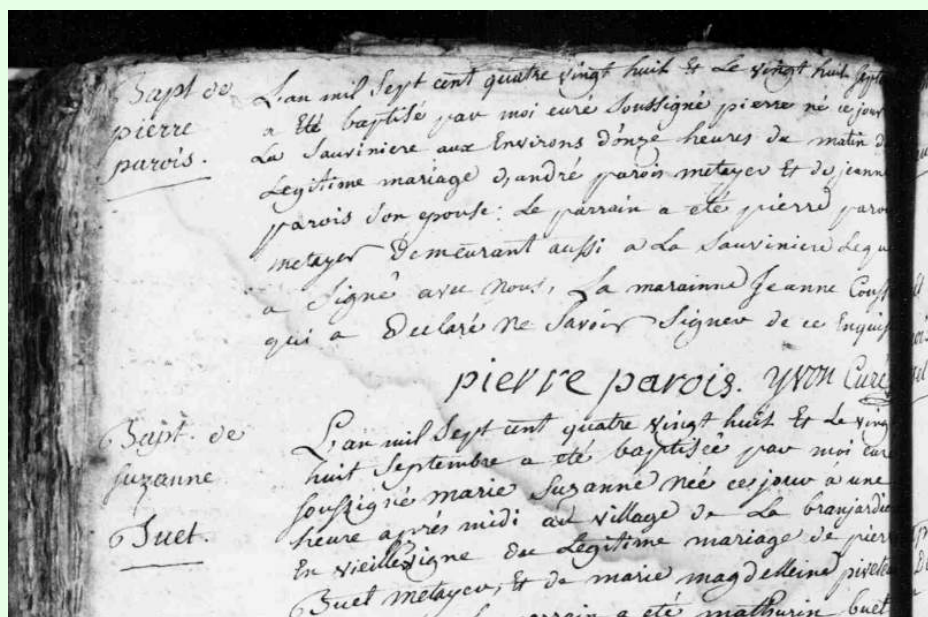 Bapt de
pierre
parois.
L'an mil Sept cent quatre vingt huit Et Le vingt huit Sept
a Eté baptisé par moi curé Soussigné pierre né ce jour
La Sauviniere aux Environs d'onze heures du matin d
Legitime mariage d'andré parois metayer Et de jeann
parois Son epouse: Le parrain a eté pierre paroi
metayer Demeurant aussi a La Sauviniere Lequ
a Signé avec Nous, La marainne Jeanne Couss
qui a Declaré ne Savoir Signer de ce Enquis
pierre parois. yvon Curé
Bapt. de
suzanne
Buet.
L'an mil Sept cent quatre vingt huit Et Le ving
huit Septembre a eté baptisée par moi cur
soussigné marie Suzanne née ce jour à une
heure après midi au village de La branjardie
En vieillevigne du Legitime mariage de pierr
Buet metayer, Et de marie magdelleine pivete
parrain a eté mathurin buet